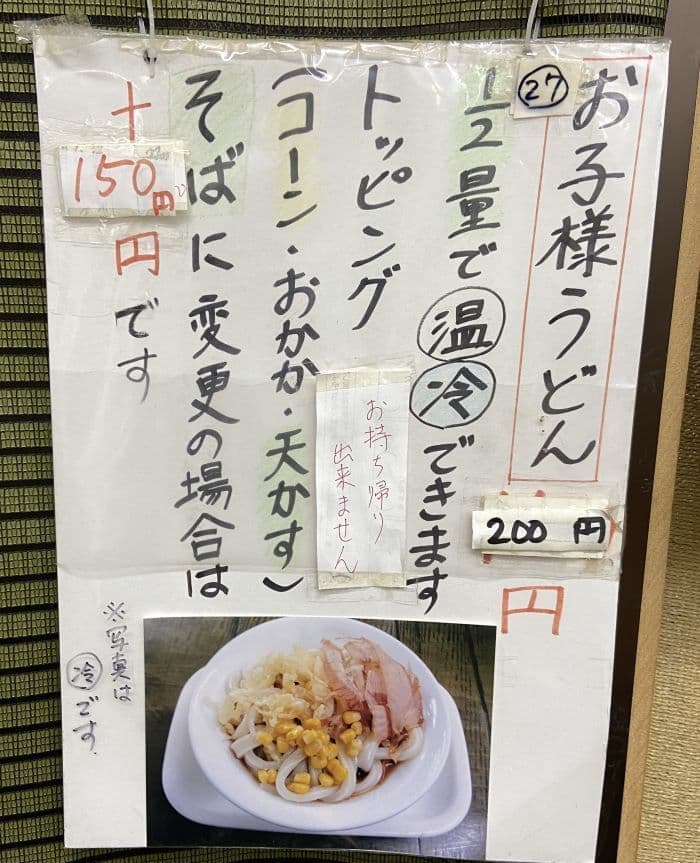 ㉗
お子様うどん
200円
円
1/2量で温冷できます
トッピング
(コーン・おかか・天かす)
お持ち帰り
出来ません
そばに変更の場合は
+150円
円です
※写真は
冷です